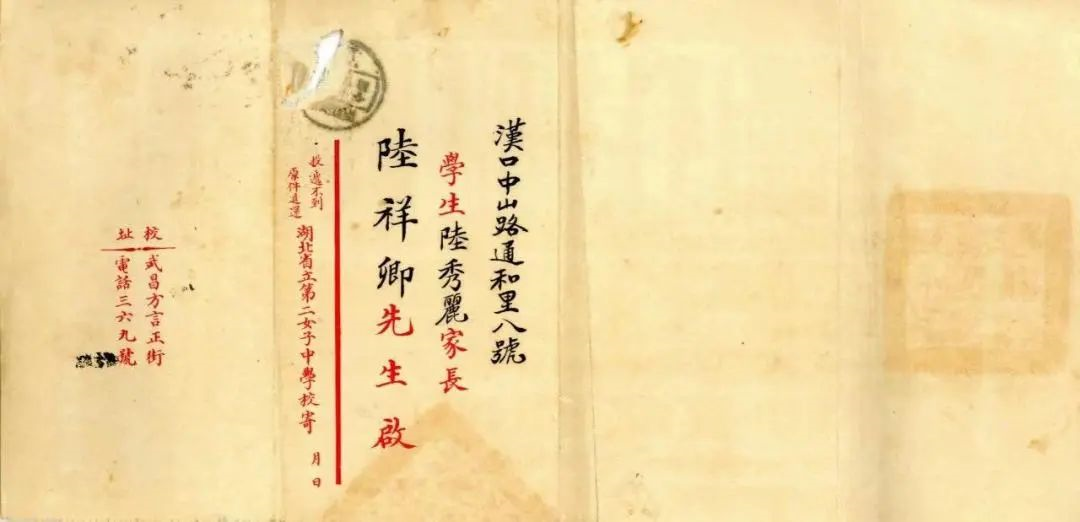 漢口中山路通和里八號
學生陸秀麗家長
陸祥卿先生啟
投遞不到
原件退還
湖北省立第二女子中學校寄 月 日
校址
武昌方言正街
電話三六九號